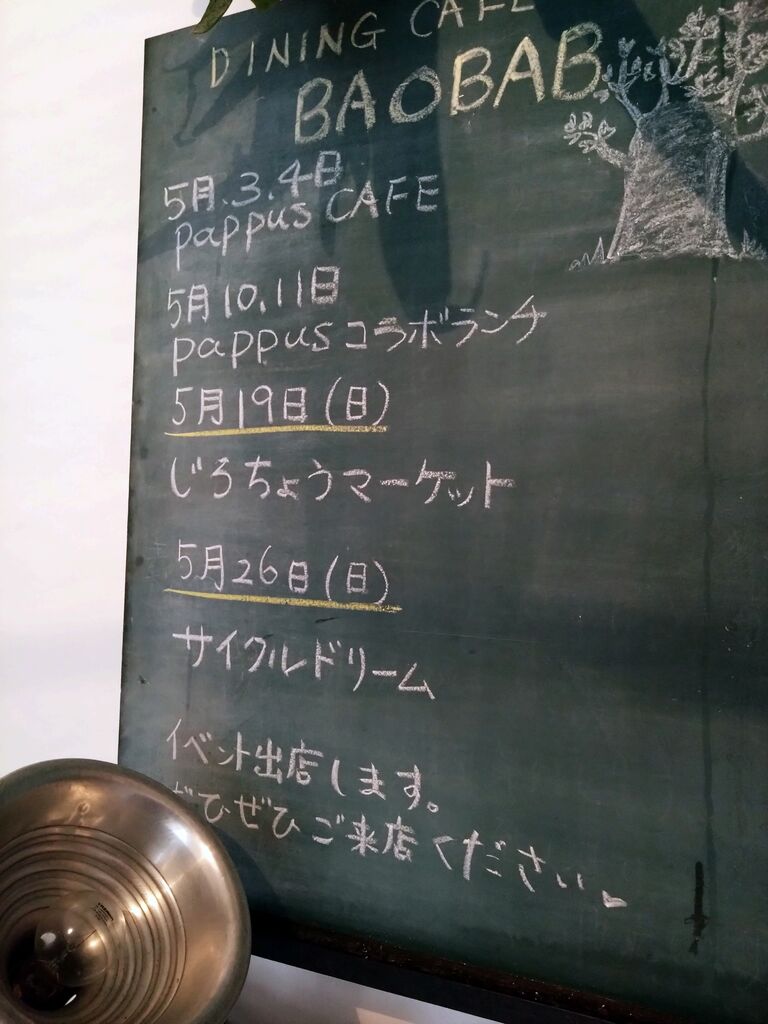 DINING CAFE
BAOBAB
5月.3.4日
pappus CAFE
5月10.11日
pappusコラボランチ
5月19日(日)
じろちょうマーケット
5月26日(日)
サイクルドリーム
イベント出店します。
ぜひぜひご来店ください